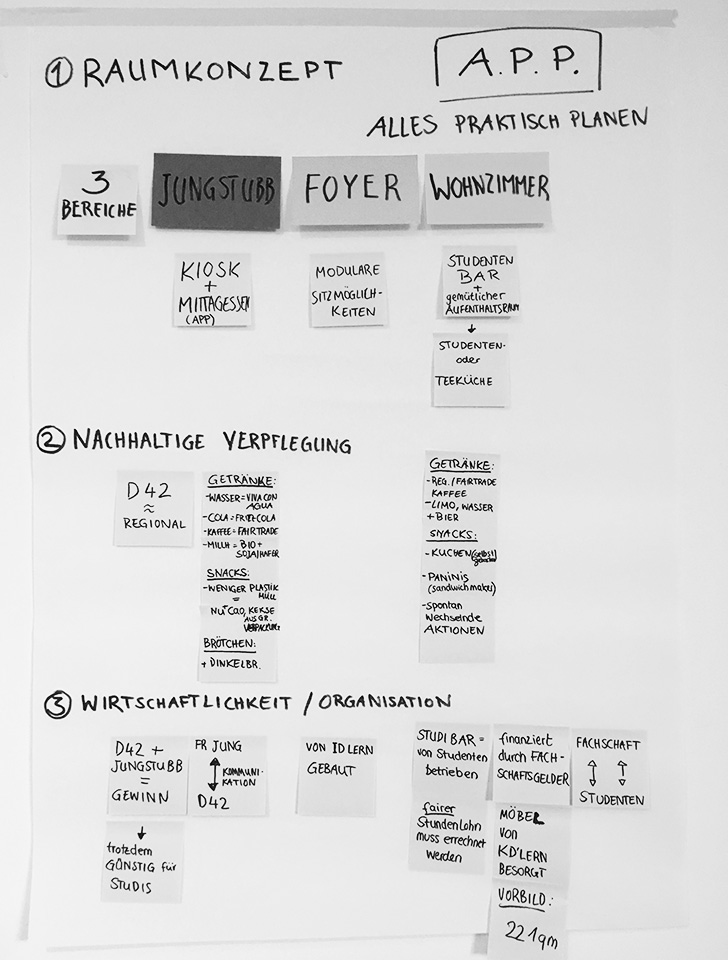 ① RAUMKONZEPT
A.P.P.
ALLES PRAKTISCH PLANEN
3
BEREICHE
JUNGSTUBB
FOYER
WOHNZIMMER
KIOSK
+
MITTAGESSEN
(APP)
MODULARE
SITZMÖGLICH-
KEITEN
STUDENTEN
BAR
+
gemütlicher
AUFENTHALTSRAUM
↓
STUDENTEN-
oder
TEEKÜCHE
② NACHHALTIGE VERPFLEGUNG
D42
≈
REGIONAL
GETRÄNKE:
-WASSER=VIVA CON
AGUA
-COLA=FRITZ-COLA
-KAFFEE=FAIRTRADE
-MILCH=BIO+
SOJA/HAFER
SNACKS:
-WENIGER PLASTIK
MÜLL
=
NUCAO, KEKSE
AUS GR.
VERPACKUNG
BRÖTCHEN:
+ DINKELBR.
GETRÄNKE:
-REG./FAIRTRADE
KAFFEE
-LIMO, WASSER
+BIER
SNACKS:
-KUCHEN (selbst
gebacken)
-PANINIS
(sandwichmaker)
-spontan
wechselnde
AKTIONEN
③ WIRTSCHAFTLICHKEIT / ORGANISATION
D42 +
JUNGSTUBB
=
GEWINN
↓
trotzdem
GÜNSTIG für
STUDIS
FR JUNG
↕ KOMMUNI-
KATION
D42
VON IDLERN
GEBAUT
STUDIBAR =
von Studenten
betrieben
fairer
Stundenlohn
muss errechnet
werden
finanziert
durch FACH-
SCHAFTSGELDER
MÖBEL
von
KD'LERN
BESORGT
VORBILD:
221qm
FACHSCHAFT
↕ ↕
STUDENTEN